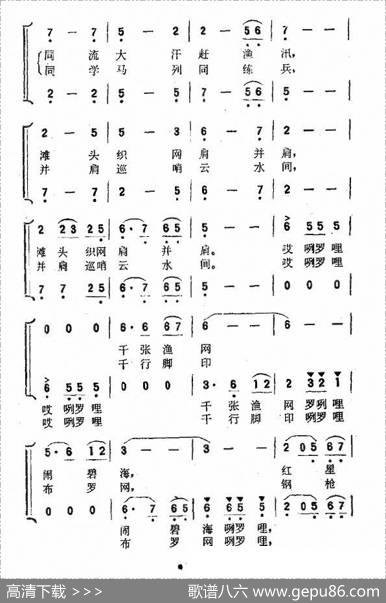 7 — 7 | 5 — 2 | 2 — 56 | 7 — — |
同 流 大 汗 赶 渔 汛,
同 学 马 列 同 练 兵,
2 — 2 | 5 — 5 | 7 — 56 | 2 — — |
2 — 5 | 5 — 3 | 6 — 7 | 2 — — |
滩 头 织 网 肩 并 肩,
并 肩 巡 哨 云 水 间,
7 — 7 | 2 — 5 | 6 — 7 | 2 — — |
2 23 25 | 6·7 65 | 5 — — | 6 55 5 |
滩 头 织网 肩 并 肩。 哎 咧罗 哩
并 肩 巡哨 云 水 间。 哎 咧罗 哩
7 7 25 | 6·7 65 | 5 — — | 0 0 0 |
0 0 0 | 6·6 67 | 6 — — | 6 — — |
千 张 渔 网
千 行 脚 印
6 55 5 | 0 0 0 | 3·6 12 | 2 32 1 |
哎 咧罗 哩 千 张 渔 网 罗咧 哩
哎 咧罗 哩 千 行 脚 印 罗咧 哩
5·6 12 | 3 — — | 3 — — | 2 05 67 |
闹 碧 海, 红 星
布 罗 网, 钢 枪
0 0 0 | 6·7 65 | 6 55 5 | 2 05 67 |
闹 碧 海 咧罗 哩,
布 罗 网 咧罗 哩,
高清下载 >>>
歌谱八六 www.gepu86.com